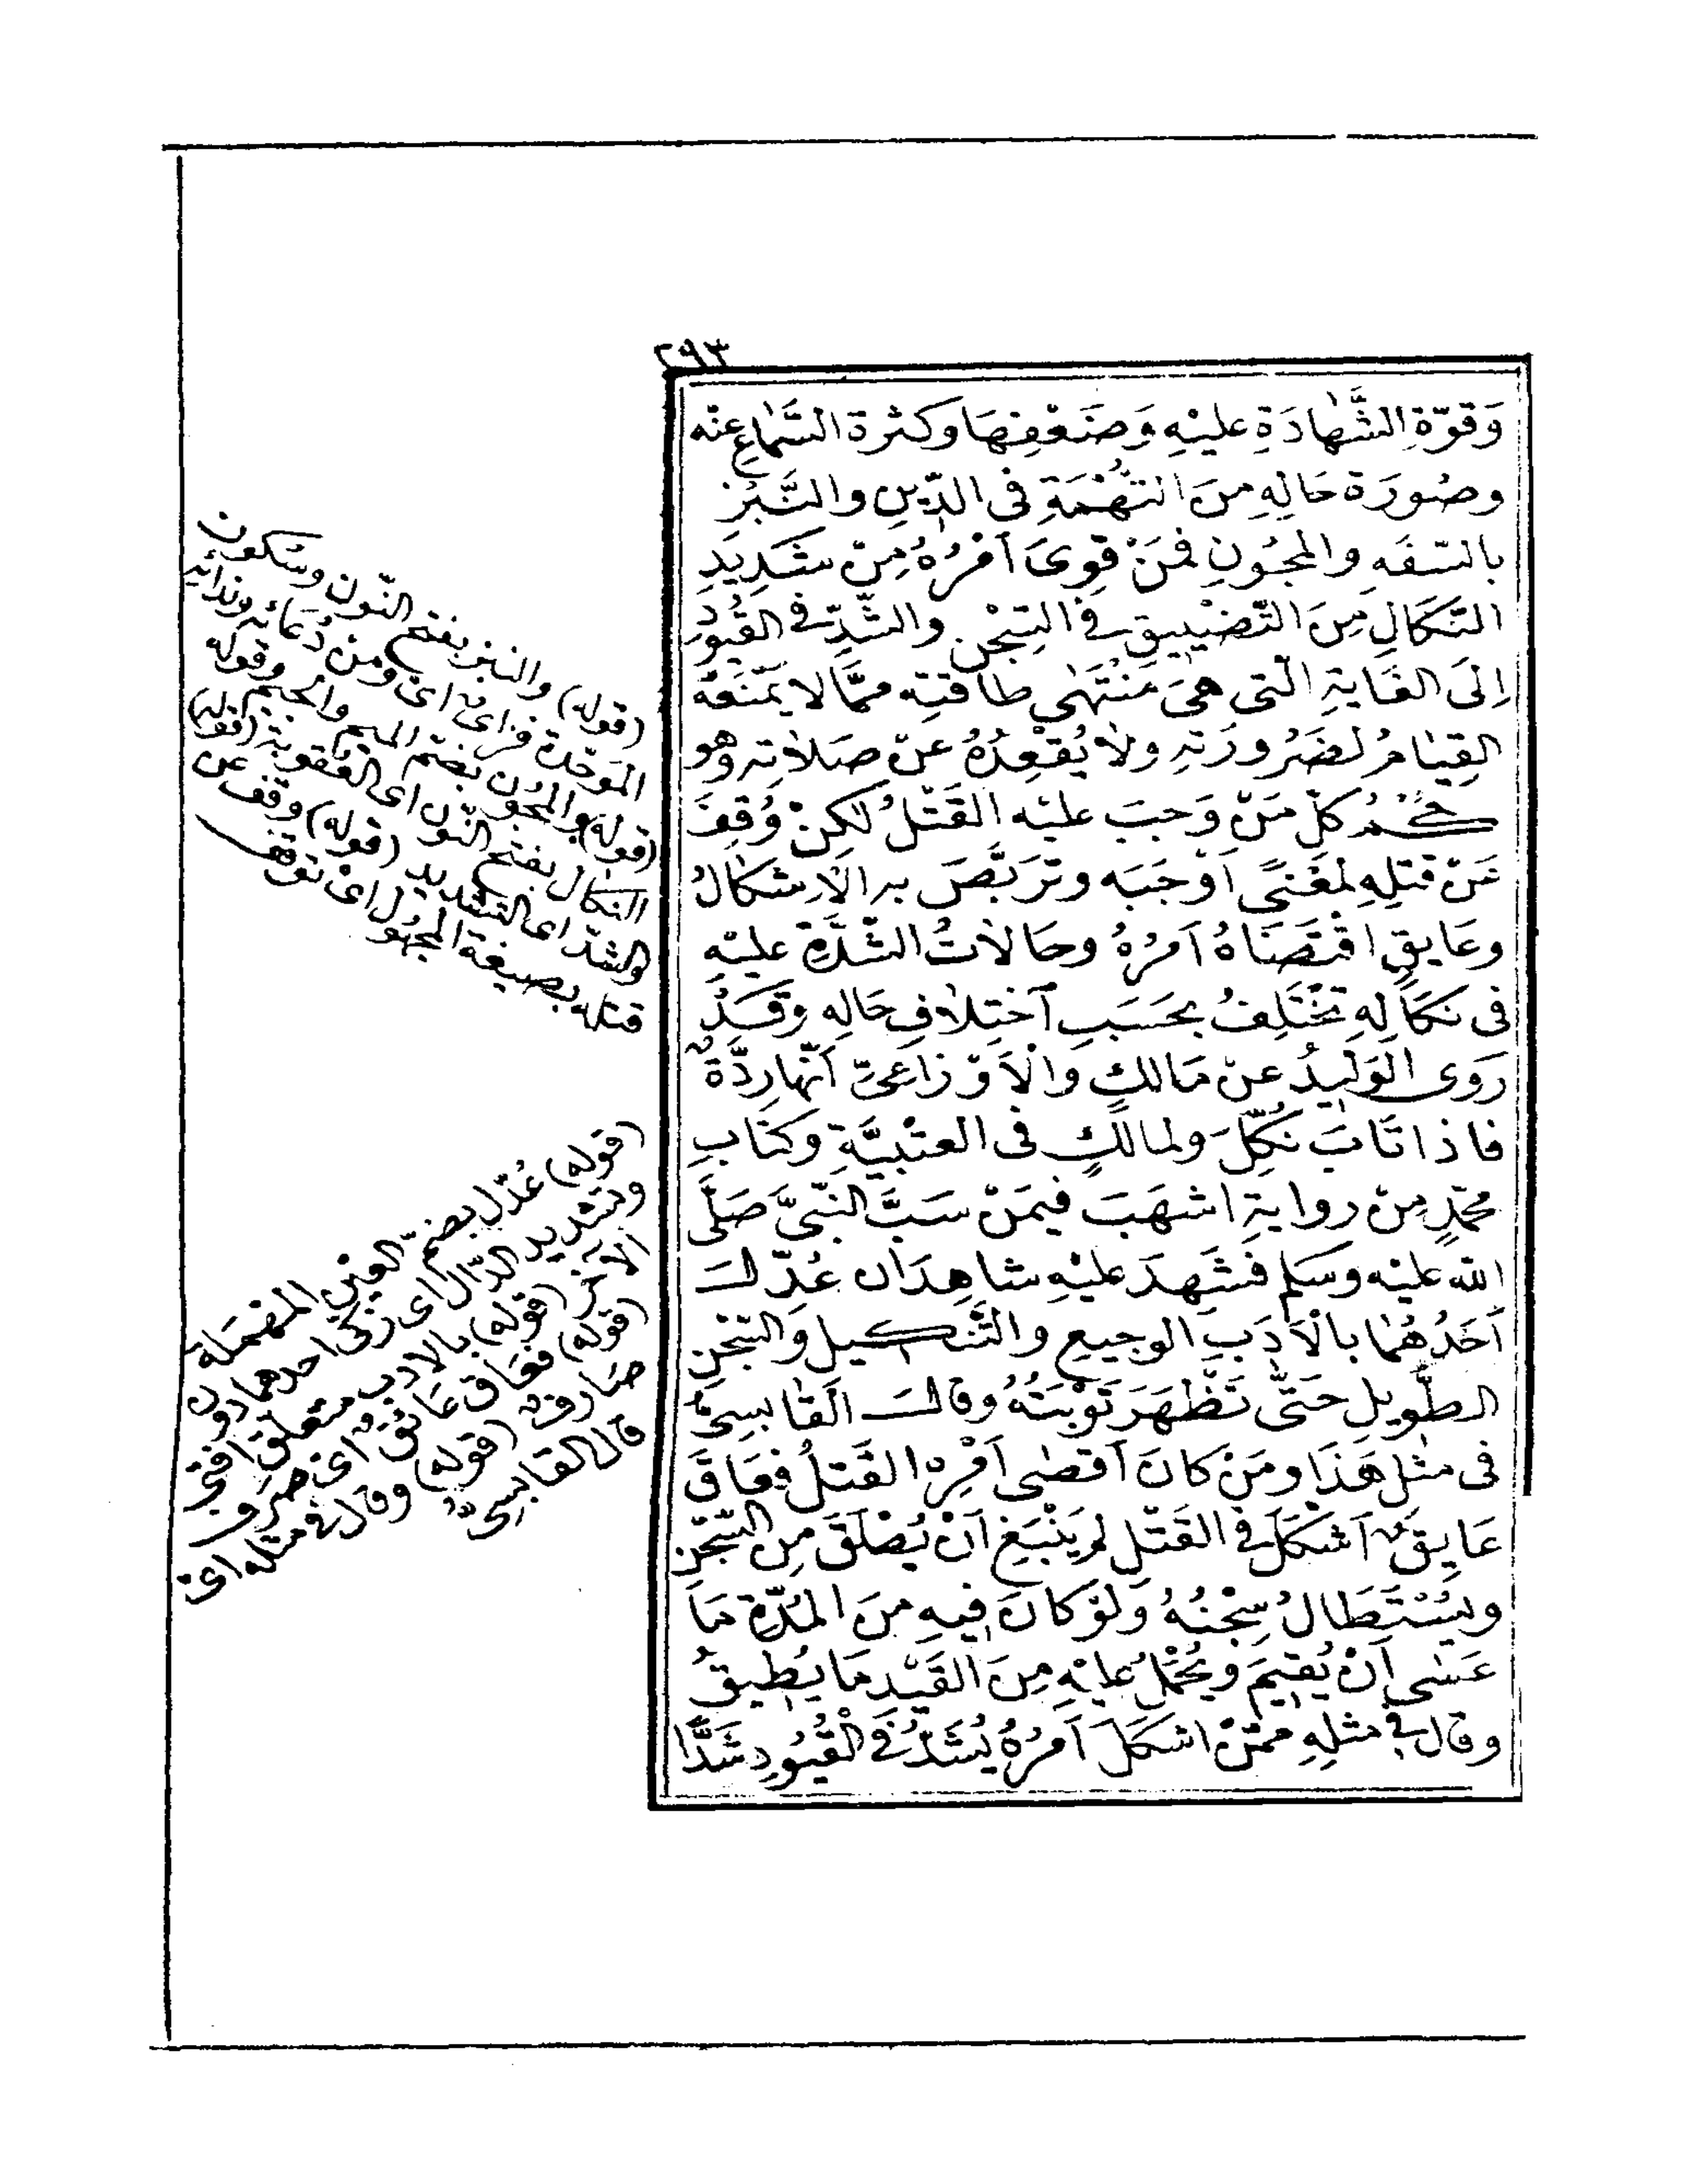 ٢٩٣
وَقوّةِ الشَّهادَةِ عليْهِ وَضَعْفِهَا وكثرة السَّماعِ عنْه
وصُورَة حَالِهِ مِنَ التُّهْمَةِ فى الدّينِ والنَّبْزِ
بالسّفَه والمجُونِ فمَنْ قوِىَ اَمْرُهُ مِنْ شَدِيدِ
النَّكَالِ مِنَ التّضْيِيقِ فى السِّجْنِ والشَّدِّ فى القُيُودِ
اِلَى الغَايَةِ الّتى هِىَ مُنْتَهٰى طاقتِه ممَّا لا يمْنَعُهُ
القِيَامُ لضَرُورَتِهِ ولا يُقْعِدُهُ عنْ صَلاتِه وهو
حُكْمُ كلّ مَنْ وَجبَ عليْه القَتْلُ لكِنْ وُقِفَ
عَنْ قتْلِهِ لمعْنىً اَوْجَبَه وتَرَبَّصَ به الاِشكَالُ
وعَايِقٍ اقْتَضَاهُ اَمرُهُ وحَالاتُ الشّدَّةِ عليْهِ
فى نكَالِهِ تخْتَلِفُ بحَسَبِ اَختِلافِ حَالِهِ وَقَدْ
رَوى الوَلِيدُ عنْ مَالكٍ والْاَوْزاعىّ اَنّها رِدَّةٌ
فاذا تَابَ نُكِّلَ ولمالكٍ فى العتْبِيَّةِ وكتَابِ
محمّدٍ مِنْ روايةِ اشهَبَ فيمَنْ سَبَّ النّبىَّ صَلَّى
الله عليْه وسَلم فشَهِدَ عليْهِ شاهِدَان عُدّلَ
اَحَدُهُمَا بالْاَدَبِ الوجيع والتَّنكيل وَالسّجْنِ
الطَّويلِ حَتَّى تَظْهَرَ تَوْبَتُهُ وقالَ القَابسِىُّ
فى مثْلِ هَذَا ومَنْ كانَ اَقصٰى اَمْرِهِ القَتلُ فعَاقَ
عَايِقٌ اَشكَلَ فى القَتْل لم يَنْبَغِ اَنْ يُطْلَقَ مِن السّجْنِ
ويُسْتَطَالُ سِجْنُهُ وَلوْ كانَ فيهِ مِنَ المُدّةِ مَا
عَسٰى اَنْ يُقيمَ ويُحْمَلُ عليْهِ مِنَ القَيْدِ مَا يُطِيقُ
وقال فى مثلِهِ ممّنْ اشكَلَ اَمرُهُ يُشَدُّ فى الْقُيُودِ شَدًّا
(قوله) والنبز بفتح النّون وسُكون
الموَحّدة فزاىٌ اىْ ومن دُعَائه وندائه
(قوله) والمجُون بضمّ الميم والجيم وقوله
النكال بفتح النّون اى العُقوبة (قوله)
والشدّ اى التشديد (قوله) وقف عن
قتله بصيغة المجهُول اىْ توقف
(قوله) عُدّل بضمّ العيْن المهْمَلة
وتشديد الدّال اى زكى احدهما دون
الآخر (قوله) بالادب متعلق افتى
(قوله) فعَاق عَائقٌ اىْ صَرَف
صَارفٌ (قوله) وقال فى مثله اىْ
قال القابسِىّ